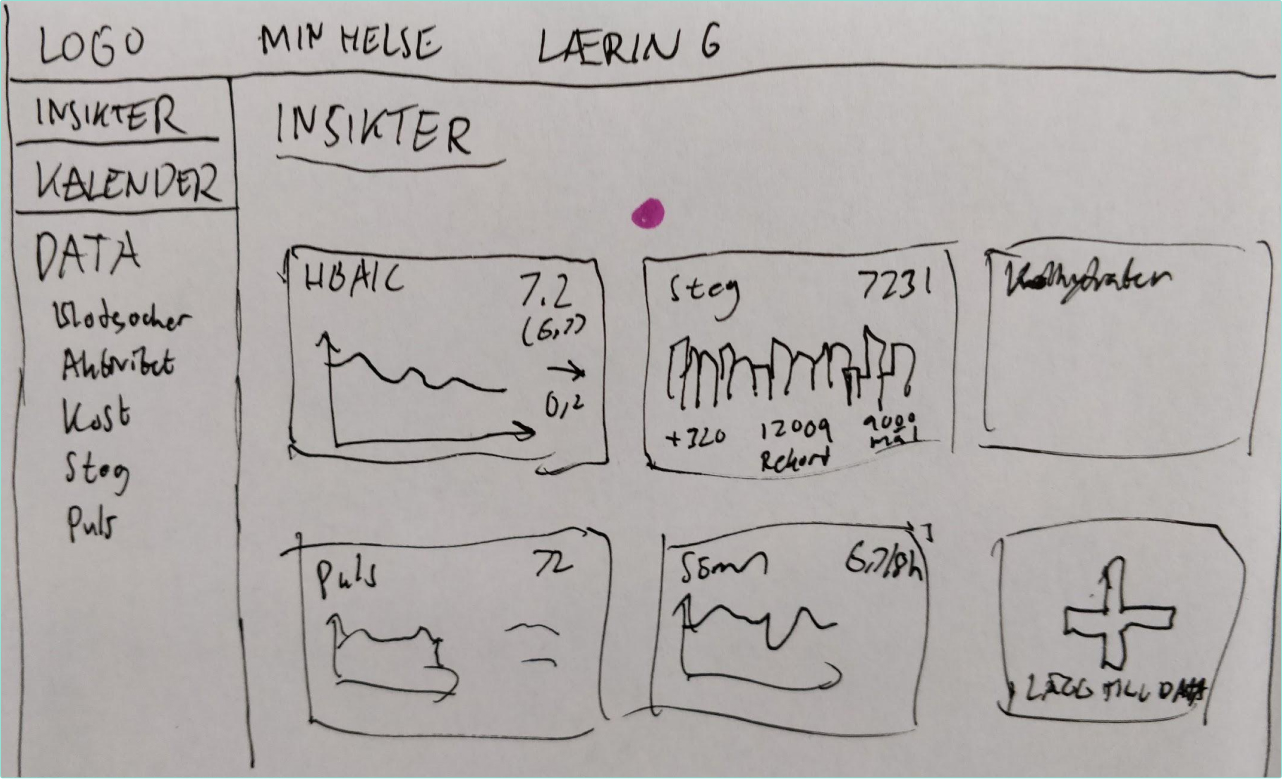 LOGO MIN HELSE LÆRING
INSIKTER
KALENDER
DATA
Blodsocker
Aktivitet
Kost
Steg
Puls
INSIKTER
HBA1C 7.2
(6,7)
→
0,2
Steg 7231
+320 12009 9000
Rekord mål
Kolhydrater
Puls 72
Sömn 6,7/8h
LÄGG TILL DATA